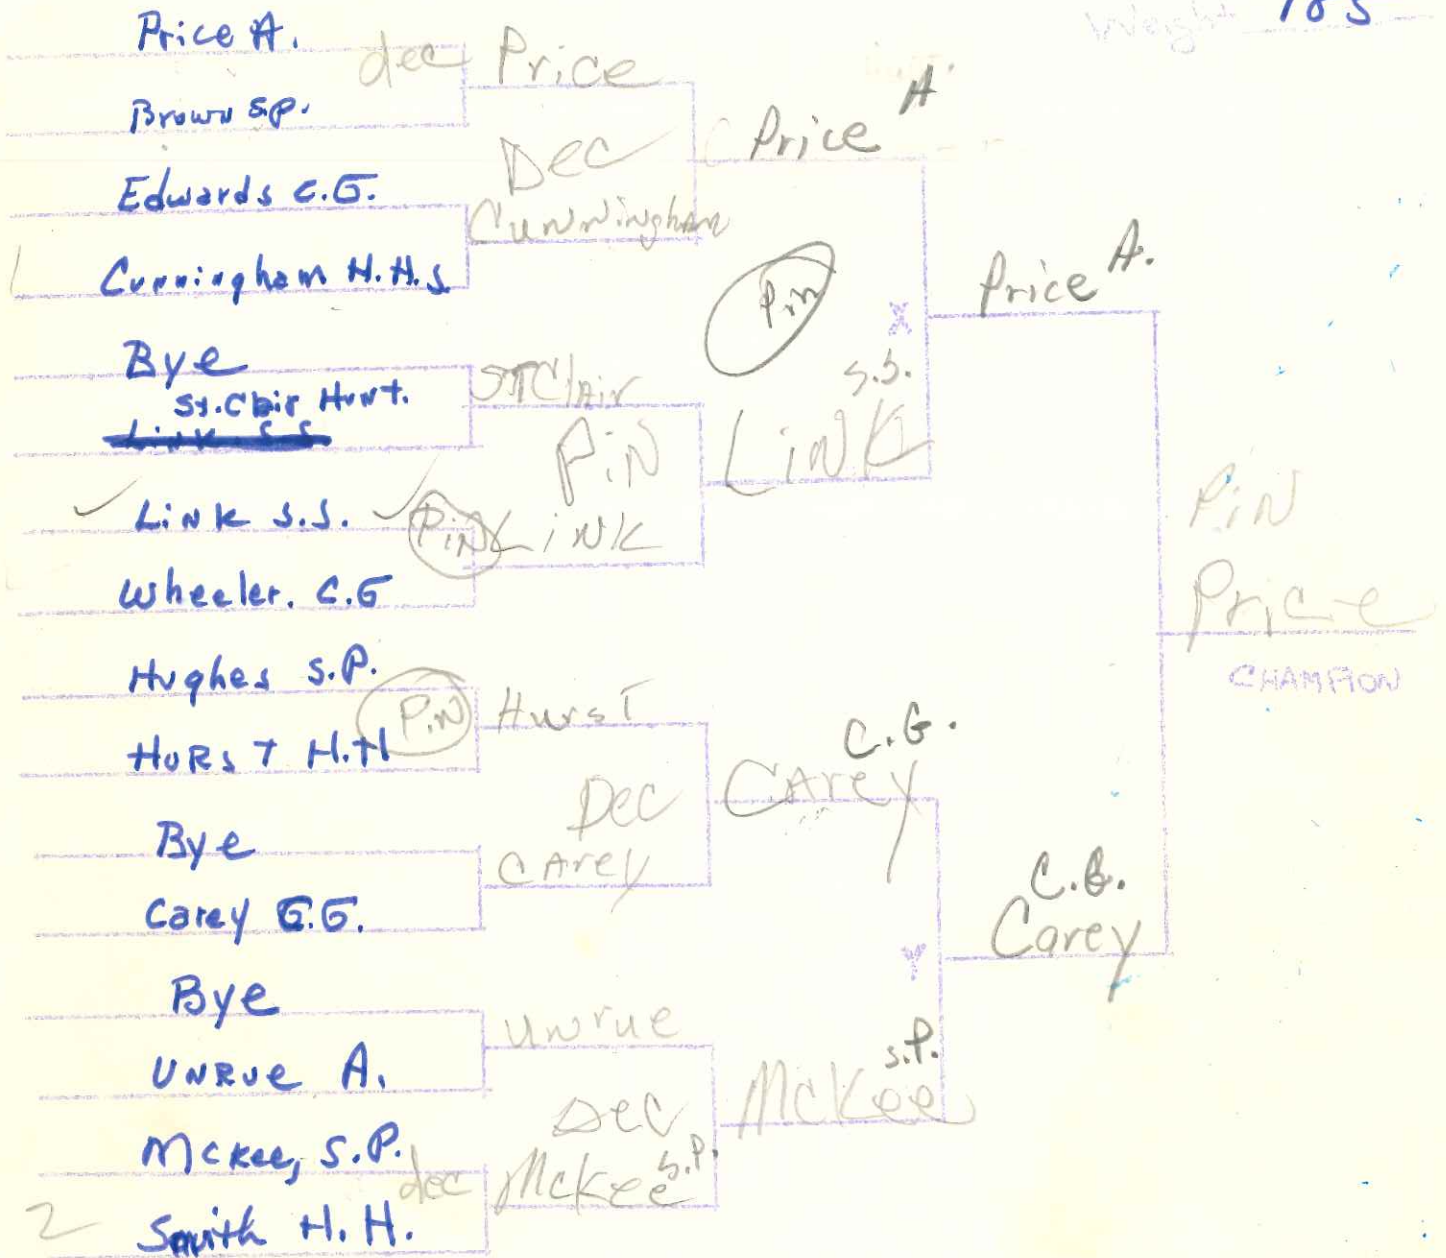 Weight 185
Price A.
Brown S.P.
Edwards C.G.
Cunningham H.H.S.
Bye
St. Clair Hunt.
Link S.S.
Link S.S.
Wheeler. C.G
Hughes S.P.
HURST H.H
Bye
Carey C.G.
Bye
UNRUE A.
McKee, S.P.
2 Smith H.H.
dec Price
Dec
Cunningham
ST Clair
PiN
PiN LiNK
PiN Hurst
Dec
CArey
unrue
Dec
dec McKee S.P.
Price A
Pin
S.S.
X
LiNK
C.G.
CArey
Y
S.P.
McKee
Price A.
C.G.
Carey
PiN
Price
CHAMPION